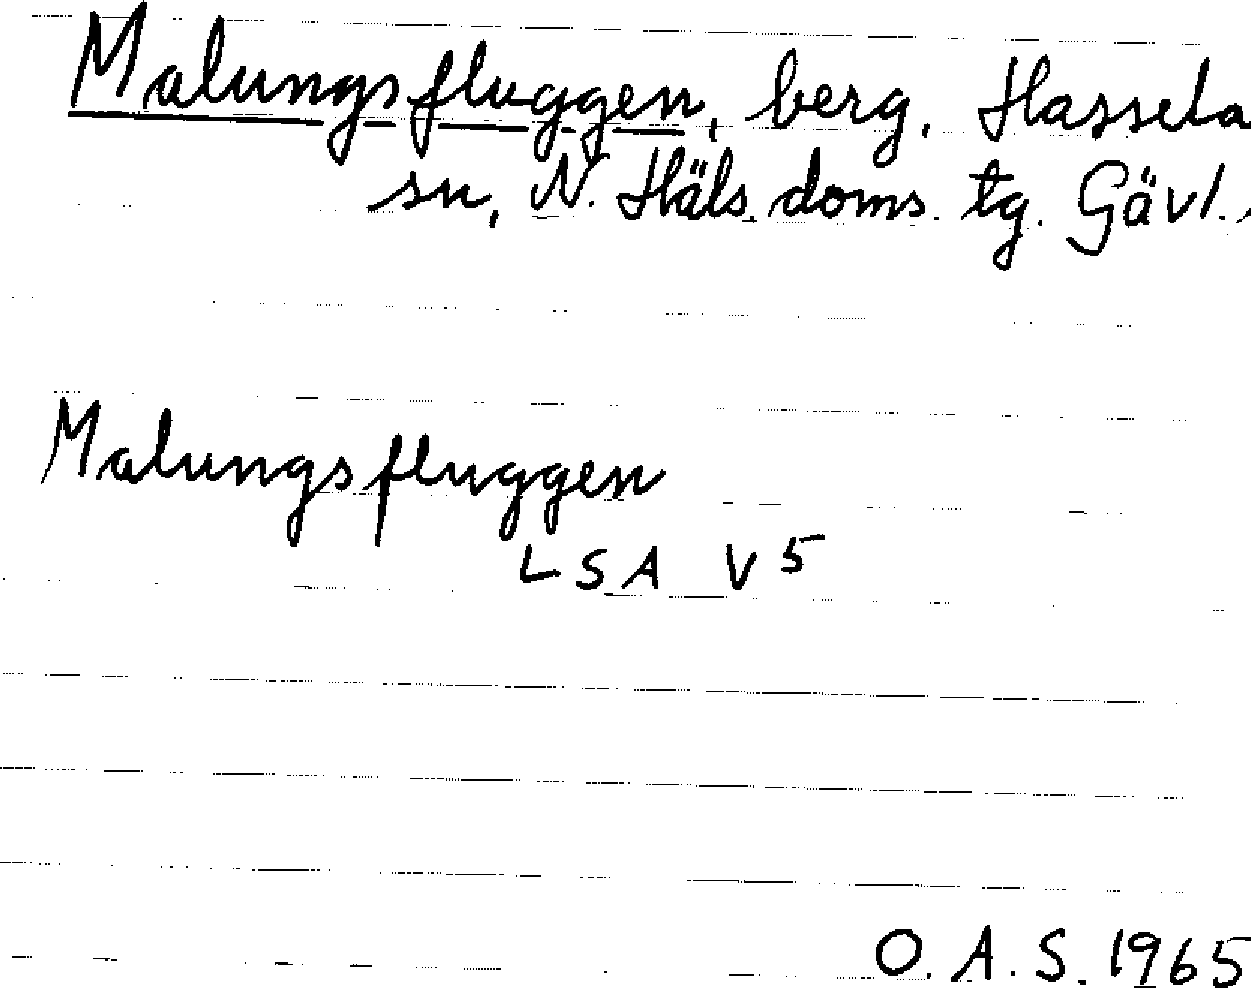 Malungsfluggen, berg. Hassela
sn, N. Häls. doms. tg. Gävl.
Malungsfluggen
LSA V 5
O. A. S. 1965